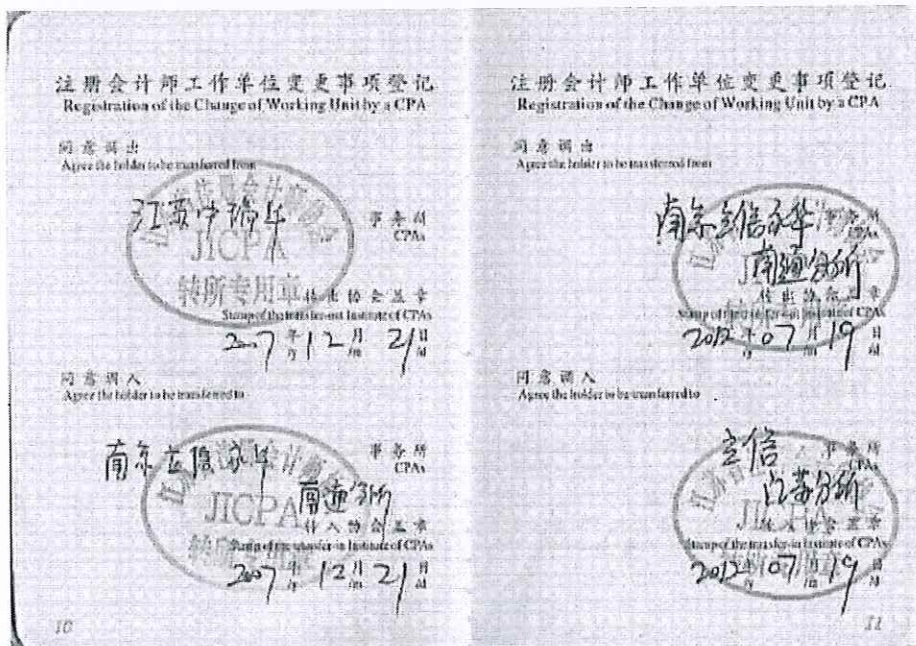 注册会计师工作单位变更事项登记
Registration of the Change of Working Unit by a CPA
同意调出
Agree the holder to be transferred from
江苏中瑞华
事务所
CPAs
JICPA
转所专用章
转出协会盖章
Stamp of the transfer-out Institute of CPAs
2007年12月21日
/y /m /d
同意调入
Agree the holder to be transferred to
南京立信永华
事务所
CPAs
南通分所
JICPA
转入协会盖章
Stamp of the transfer-in Institute of CPAs
2007年12月21日
/y /m /d
10
注册会计师工作单位变更事项登记
Registration of the Change of Working Unit by a CPA
同意调出
Agree the holder to be transferred from
南京立信永华
事务所
CPAs
南通分所
转出协会盖章
Stamp of the transfer-out Institute of CPAs
2012年07月19日
/y /m /d
同意调入
Agree the holder to be transferred to
立信
事务所
CPAs
江苏分所
JICPA
转入协会盖章
Stamp of the transfer-in Institute of CPAs
2012年07月19日
/y /m /d
11